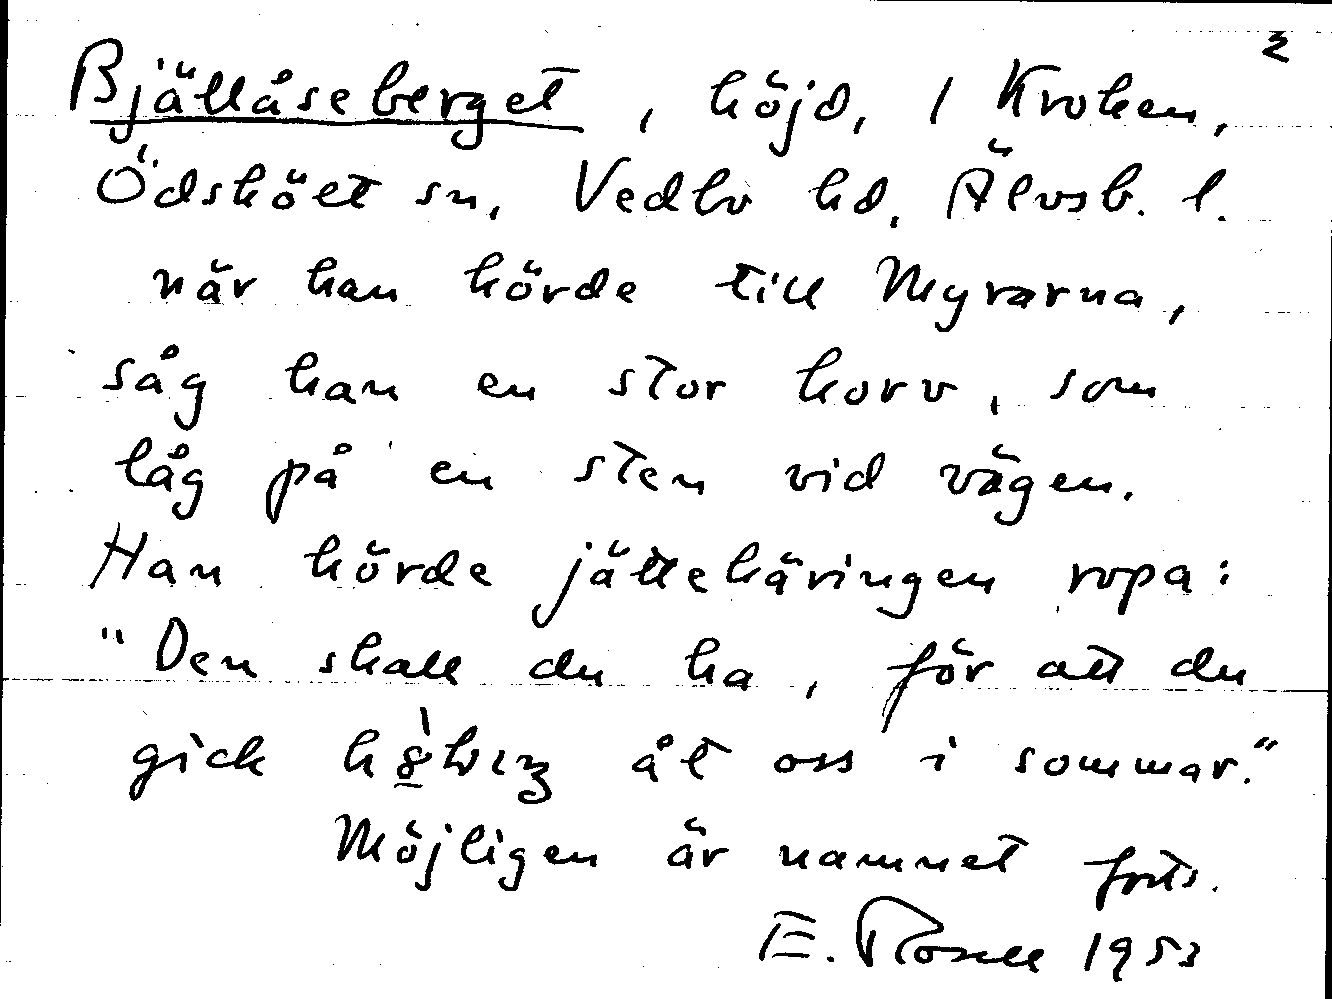 2
Bjällåseberget, höjd, / Kroken,
Ödskölt sn, Vedbo hd, Älvsb. l.
när han körde till Myrarna,
såg han en stor korv, som
låg på en sten vid vägen.
Han hörde jättekäringen ropa:
"Den skall du ha, för att du
gick åt oss i sommar."
Möjligen är namnet forts.
E. Rosell 1953